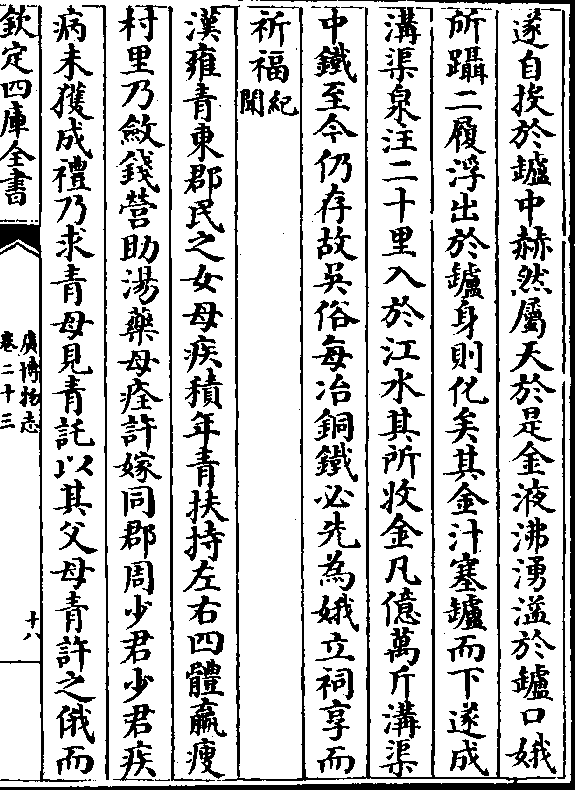 遂自投於鑪中赫然屬天於是金液沸湧溢於鑪口娥
所躡二履浮出於鑪身則化矣其金汁塞鑪而下遂成
溝渠泉注二十里入於江水其所收金凡億萬斤溝渠
中鐵至今仍存故吳俗每冶銅鐵必先為娥立祠享而
祈福紀聞
漢雍青東郡民之女母疾積年青扶持左右四體羸瘦
村里乃斂錢營助湯藥母痊許嫁同郡周少君少君疾
病未獲成禮乃求青母見青託以其父母青許之俄而
欽定四庫全書
廣博物志
卷二十三
十八